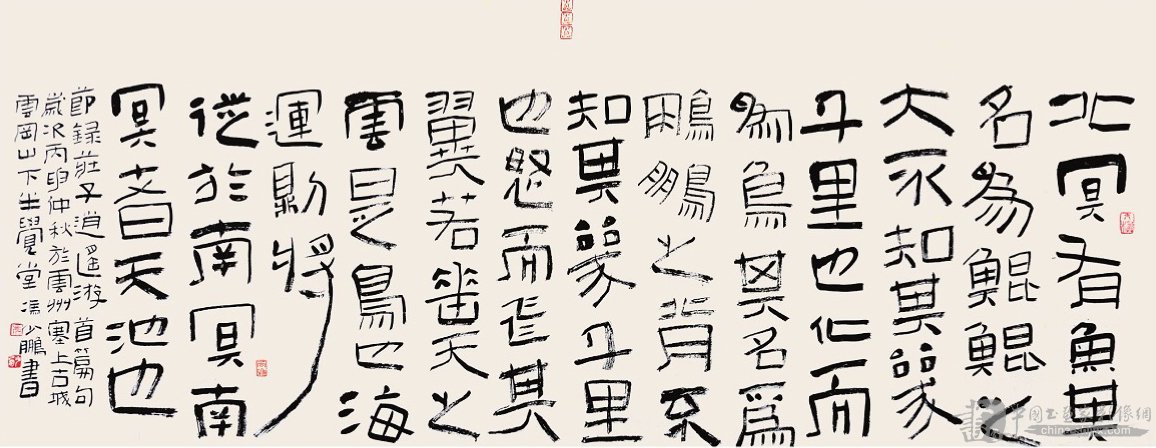 北冥有魚其
名為鯤鯤之
大不知其幾
千里也化而
為鳥其名爲
鵬鵬之背不
知其幾千里
也怒而飛其
翼若垂天之
雲是鳥也海
運則將
徙於南冥南
冥者天池也
節錄莊子逍遙游首篇句
歲次丙申仲秋於雲州塞上古城
雲岡山下生覺堂馮少鵬書